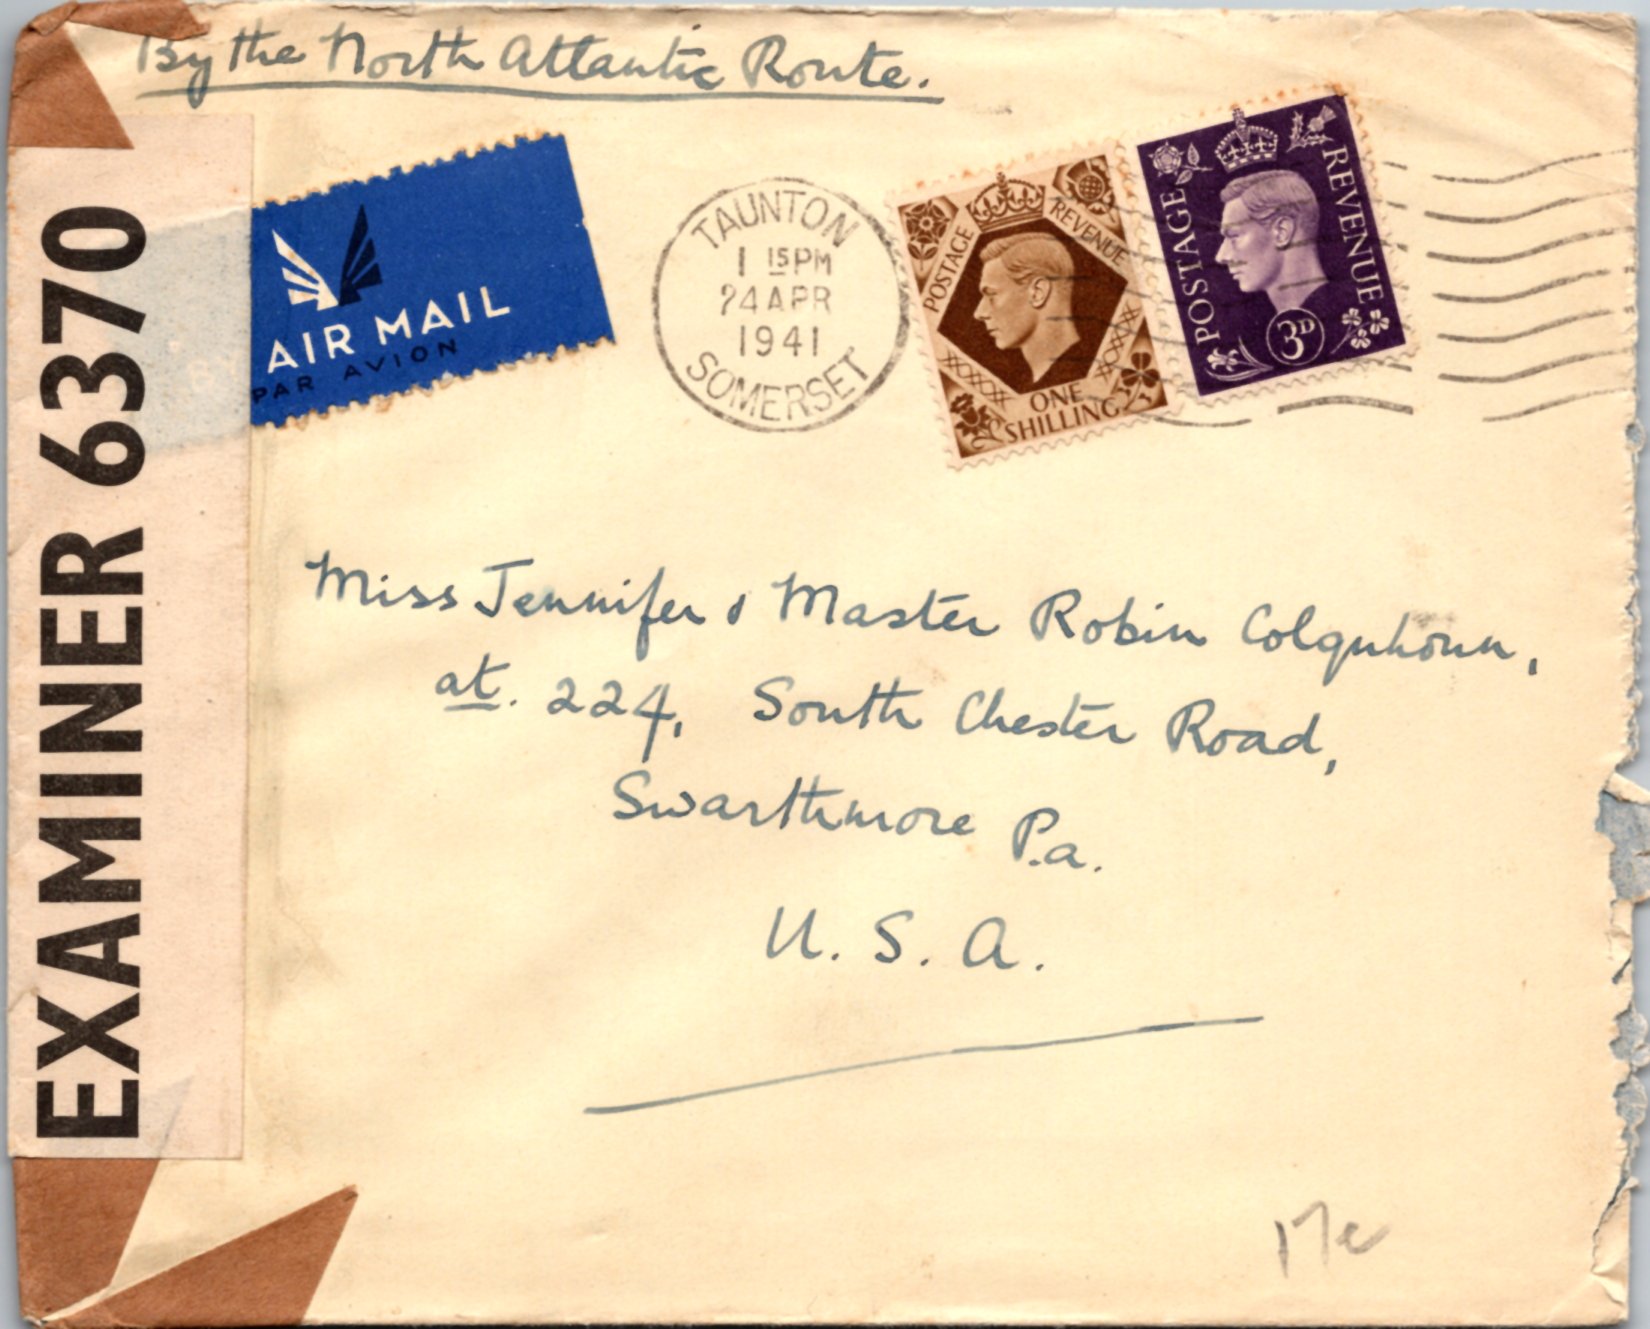 By the North Atlantic Route.
EXAMINER 6370
BY AIR MAIL
PAR AVION
TAUNTON
1 15PM
24 APR
1941
SOMERSET
POSTAGE REVENUE
ONE
SHILLING
POSTAGE REVENUE
3D
Miss Jennifer & Master Robin Colquhoun,
at. 224, South Chester Road,
Swarthmore Pa.
U. S. A.
17c